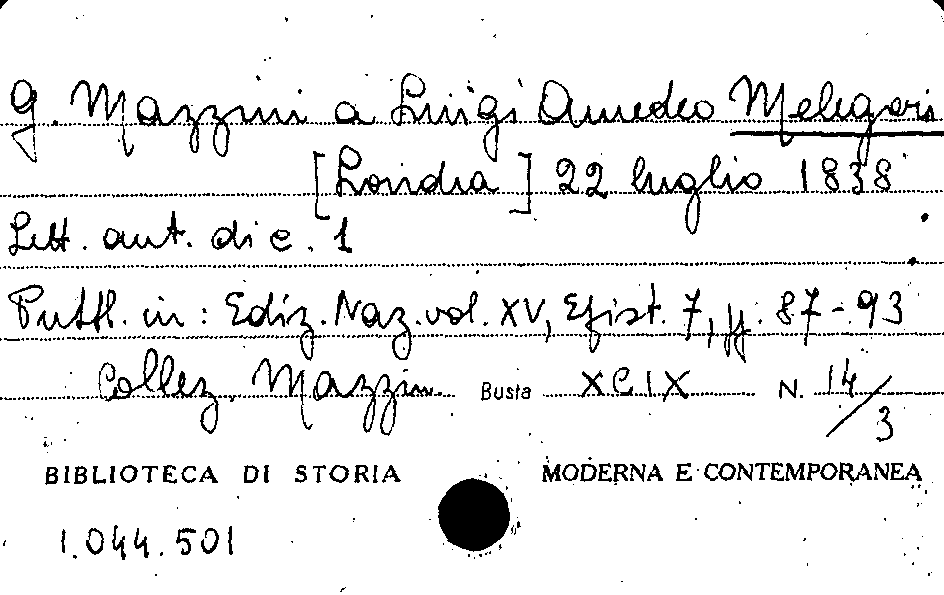 G. Mazzini a Luigi Amedeo Melegari
[Londra] 22 luglio 1838
Lett. aut. di c. 1
Pubbl. in: Ediz. Naz. vol. XV, Epist. 7, pp. 87-93
Collez. Mazzin. Busta XCIX N. 14/3
BIBLIOTECA DI STORIA MODERNA E CONTEMPORANEA
1.044.501